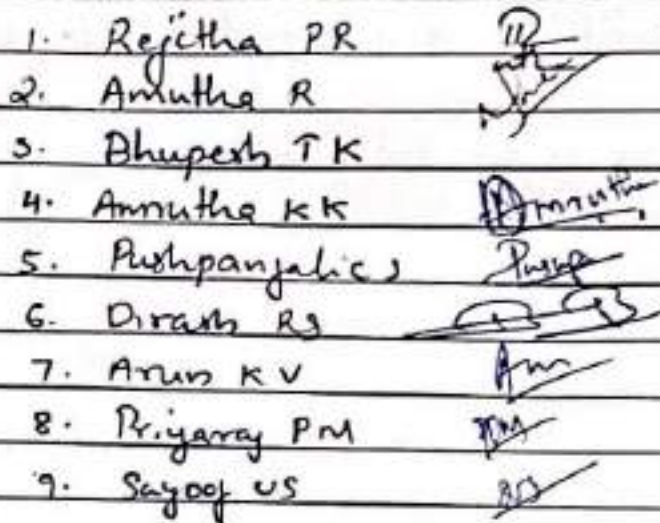 1. Rejitha PR
2. Amrutha R
3. Bhupesh T K
4. Amrutha KK Amrutha
5. Pushpanjali C J Pushpa
6. Dirash RS
7. Arun K V Arun
8. Priyaraj PM PM
9. Sayooj US